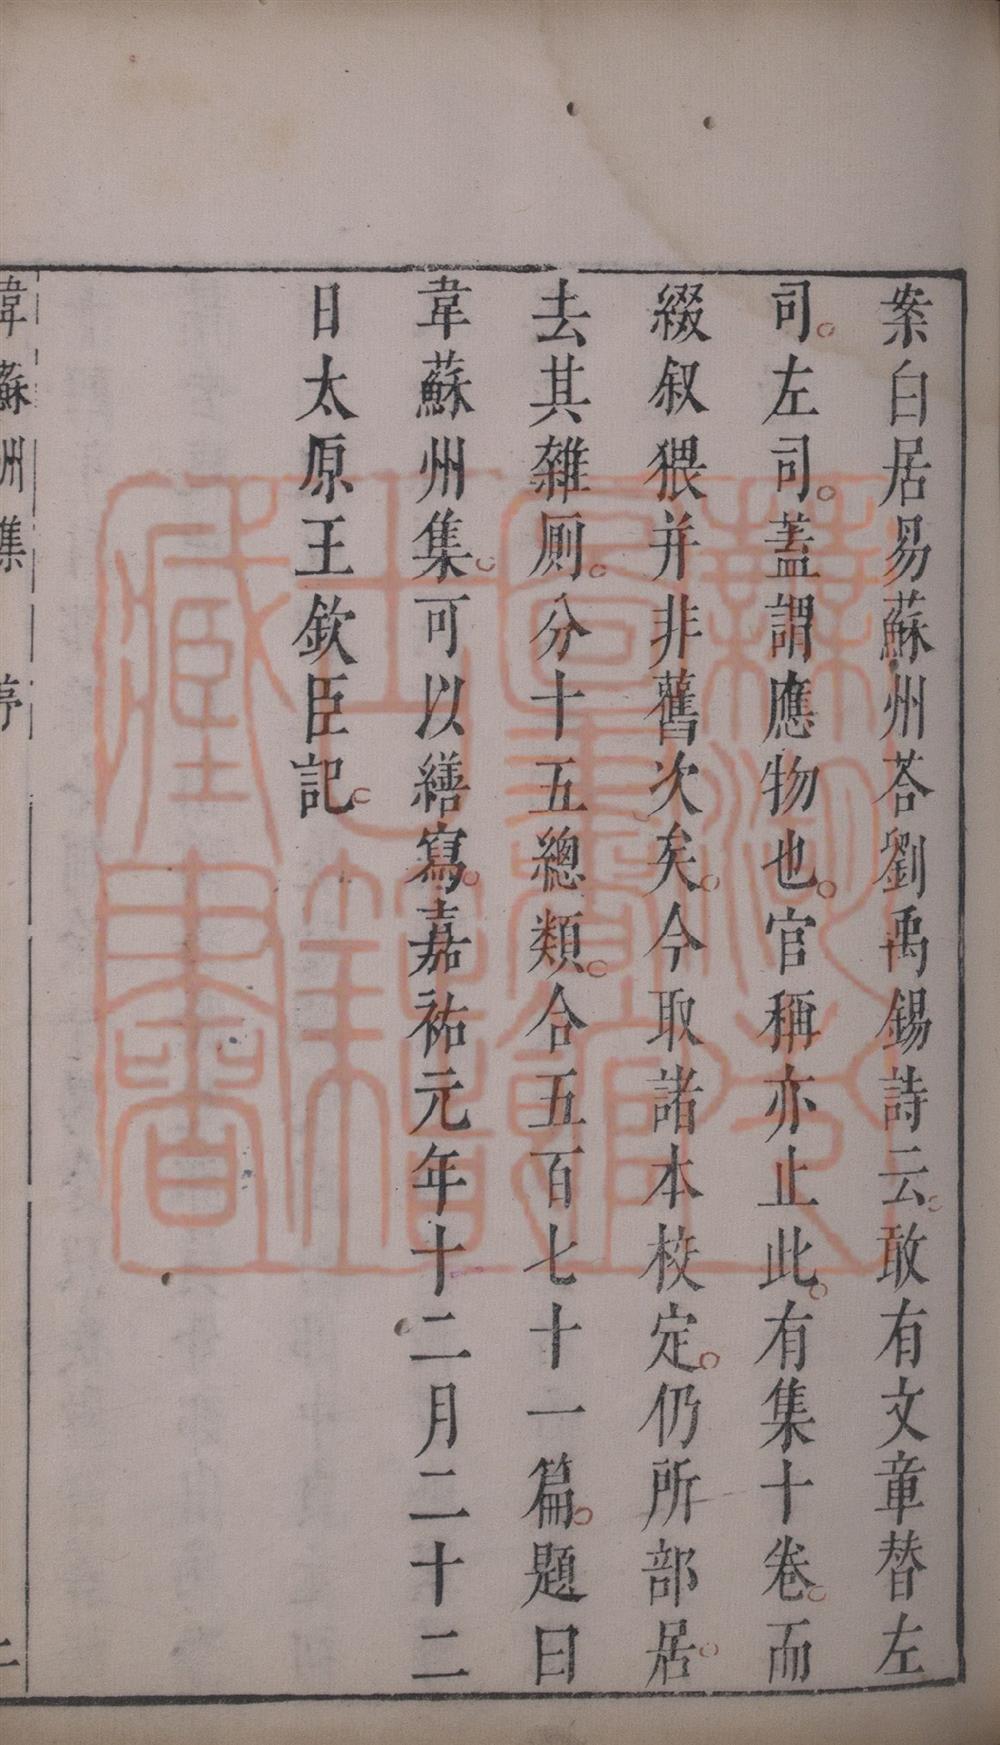 案白居易蘇州荅劉禹錫詩云敢有文章替左
司左司蓋謂應物也官稱亦止此有集十卷而
綴叙猥并非舊次矣今取諸本校定仍所部居
去其雜厠分十五總類合五百七十一篇題曰
韋蘇州集可以繕寫嘉祐元年十二月二十二
日太原王欽臣記
韋蘇州集 序 二